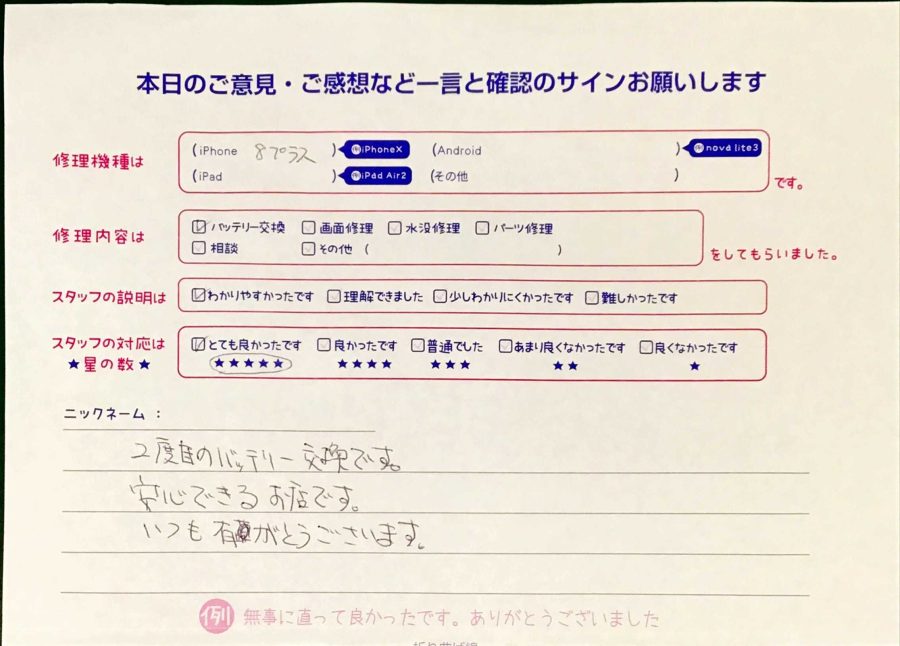 本日のご意見・ご感想など一言と確認のサインお願いします
修理機種は
(iPhone 8プラス ) 例iPhoneX (Android ) 例nova lite3
(iPad ) 例iPad Air2 (その他 )
です。
修理内容は
バッテリー交換 画面修理 水没修理 パーツ修理
相談 その他 ( )
をしてもらいました。
スタッフの説明は わかりやすかったです 理解できました 少しわかりにくかったです 難しかったです
スタッフの対応は とても良かったです 良かったです 普通でした あまり良くなかったです 良くなかったです
★星の数★ ★★★★★ ★★★★ ★★★ ★★ ★
ニックネーム：
2度目のバッテリー交換です。
安心できるお店です。
いつも有がとうございます。
例 無事に直って良かったです。ありがとうございました